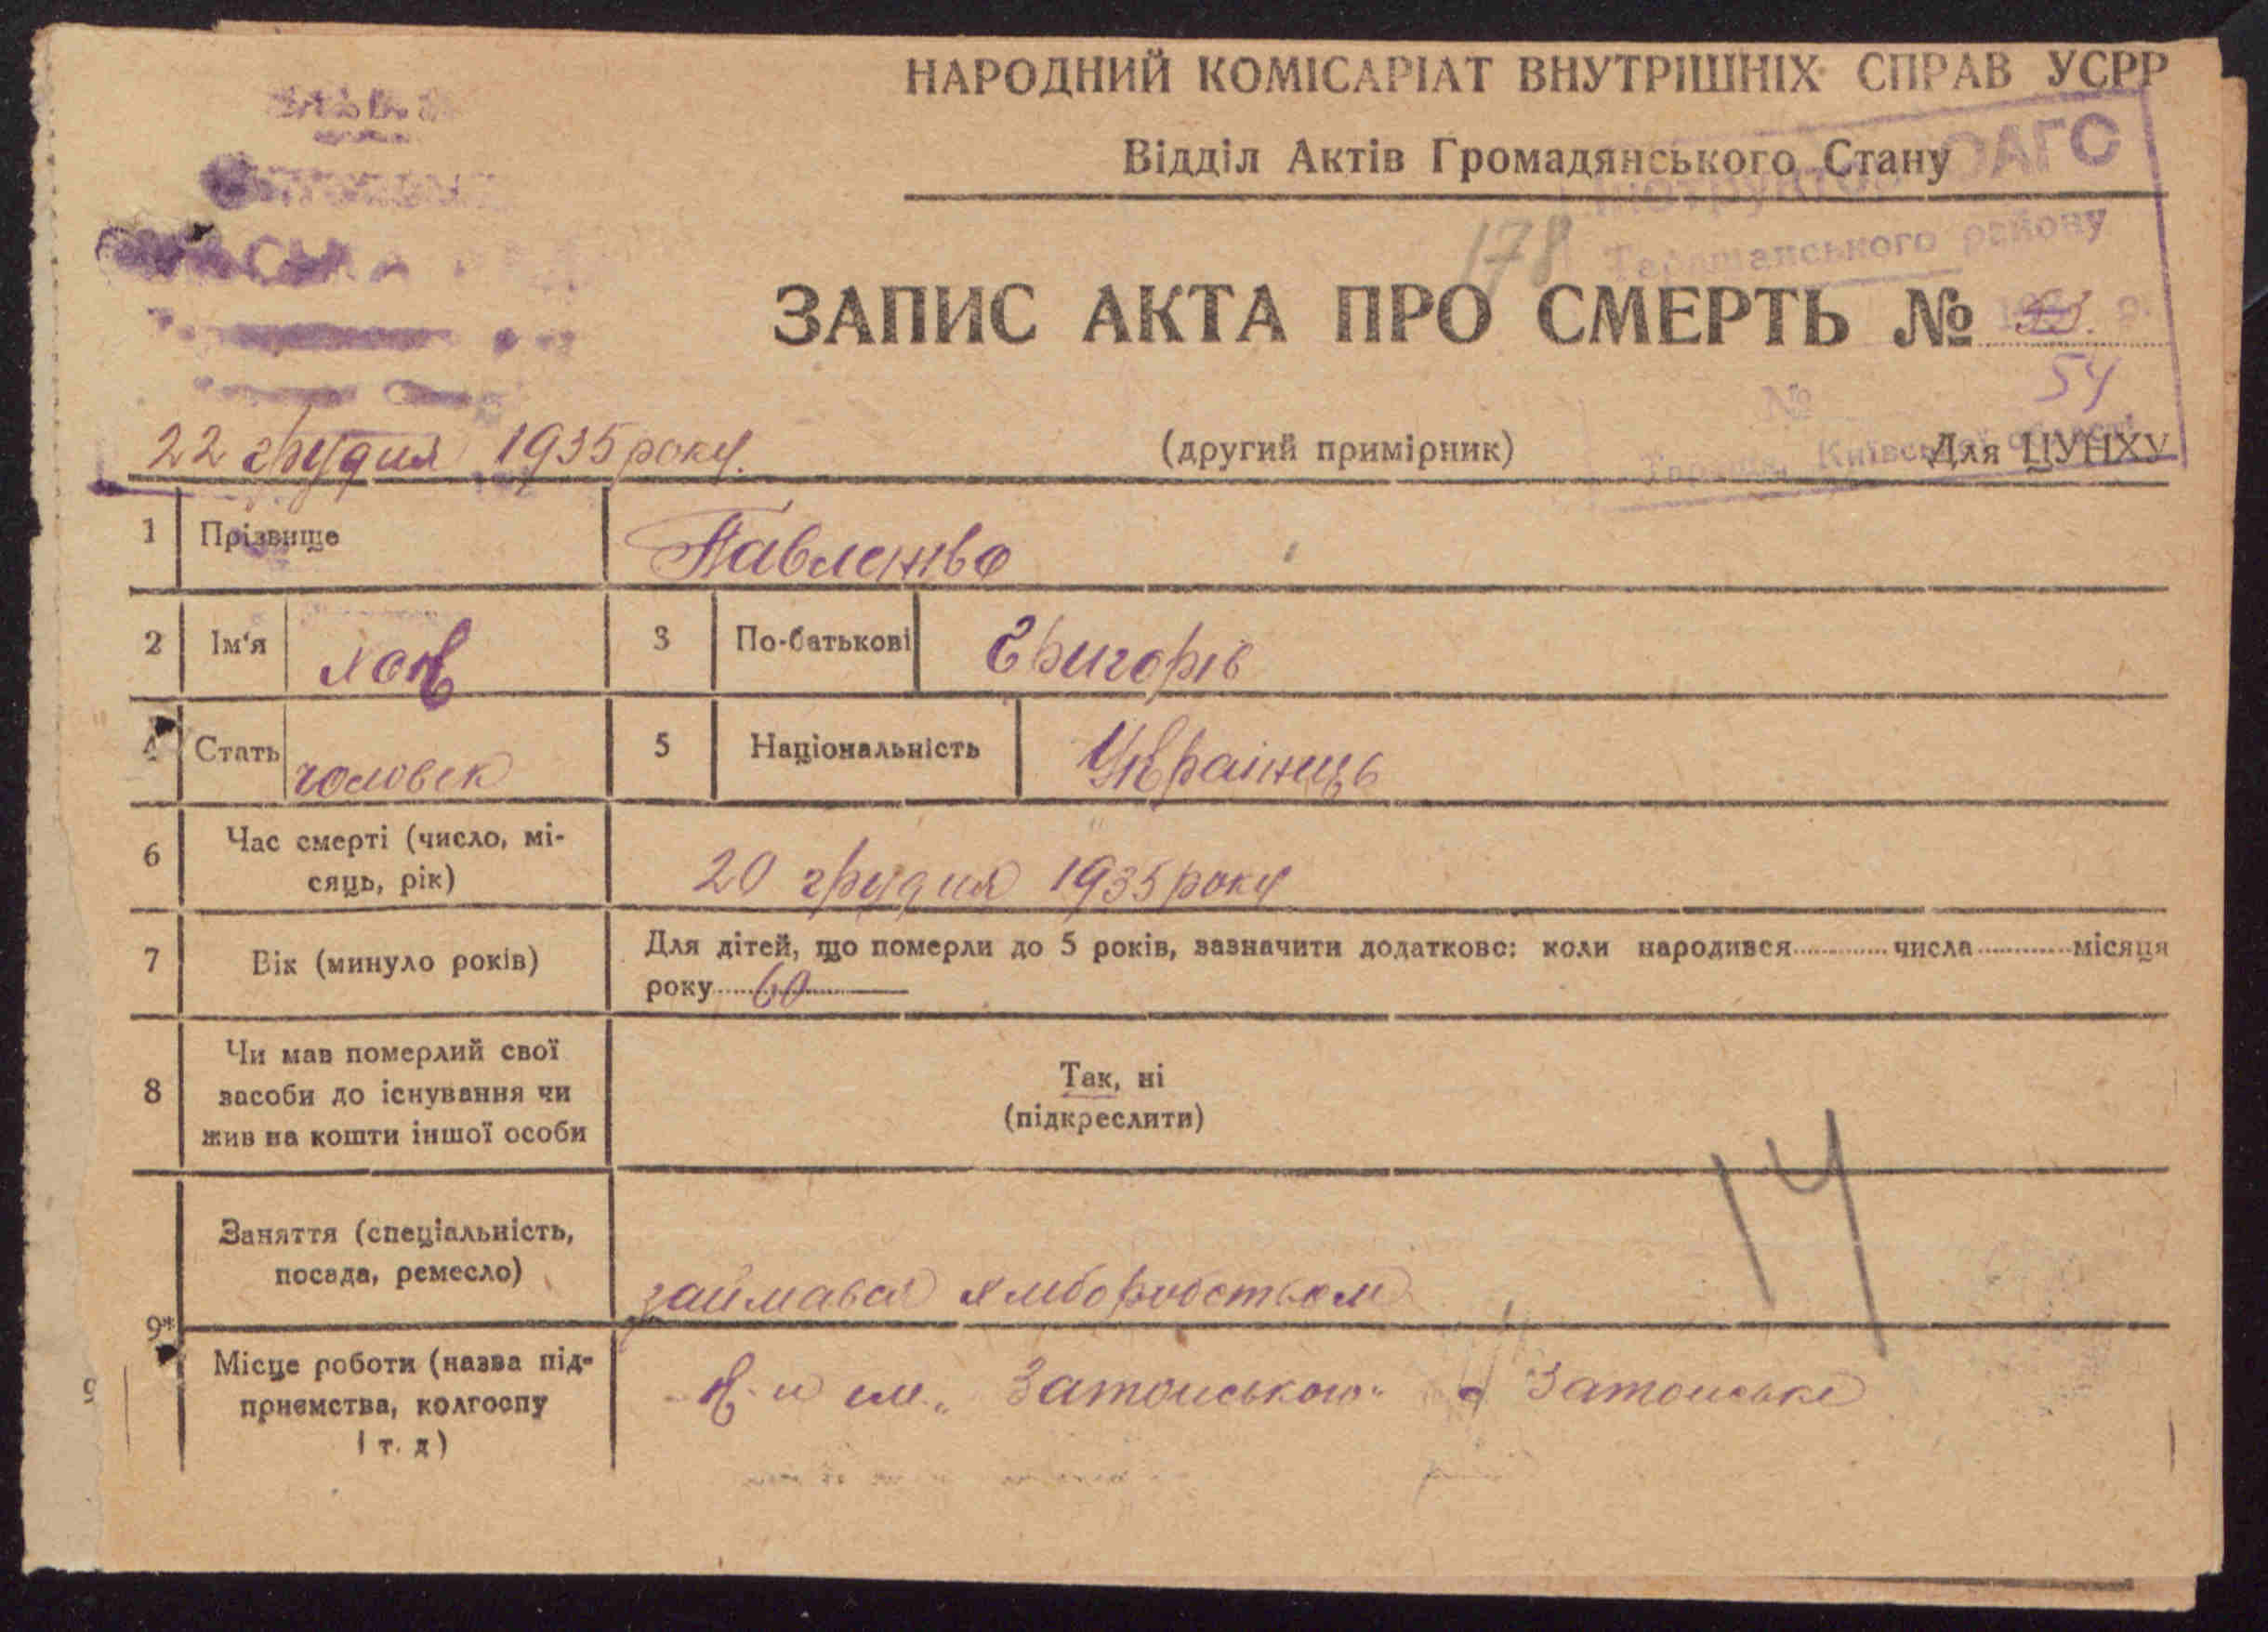 НАРОДНИЙ КОМІСАРІАТ ВНУТРІШНІХ СПРАВ УСРР
Відділ Актів Громадянського Стану
Інструктор ОАГС
Таращанського району
178
ЗАПИС АКТА ПРО СМЕРТЬ №
54
№
22 грудня 1935 року.
(другий примірник)
Для ЦУНХУ
Київської області
1 Прізвище Павленко
2 Ім'я Яків 3 По-батькові Григорів
4 Стать чоловек 5 Національність Українець
6 Час смерті (число, мі-
сяць, рік) 20 грудня 1935 року
7 Вік (минуло років) Для дітей, що померли до 5 років, зазначити додатково: коли народився числа місяця
року 60
8 Чи мав померлий свої
засоби до існування чи
жив на кошти іншої особи
Так, ні
(підкреслити)
14
9* Заняття (спеціальність,
посада, ремесло) займався хліборобством
Місце роботи (назва під-
приємства, колгоспу
і т. д) к-п ім. „Затонського" с Затонське